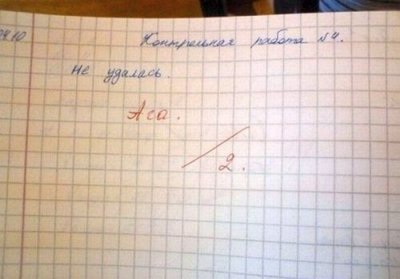 04.10
Контрольная работа №4.
Не удалась.
Ага.
2.